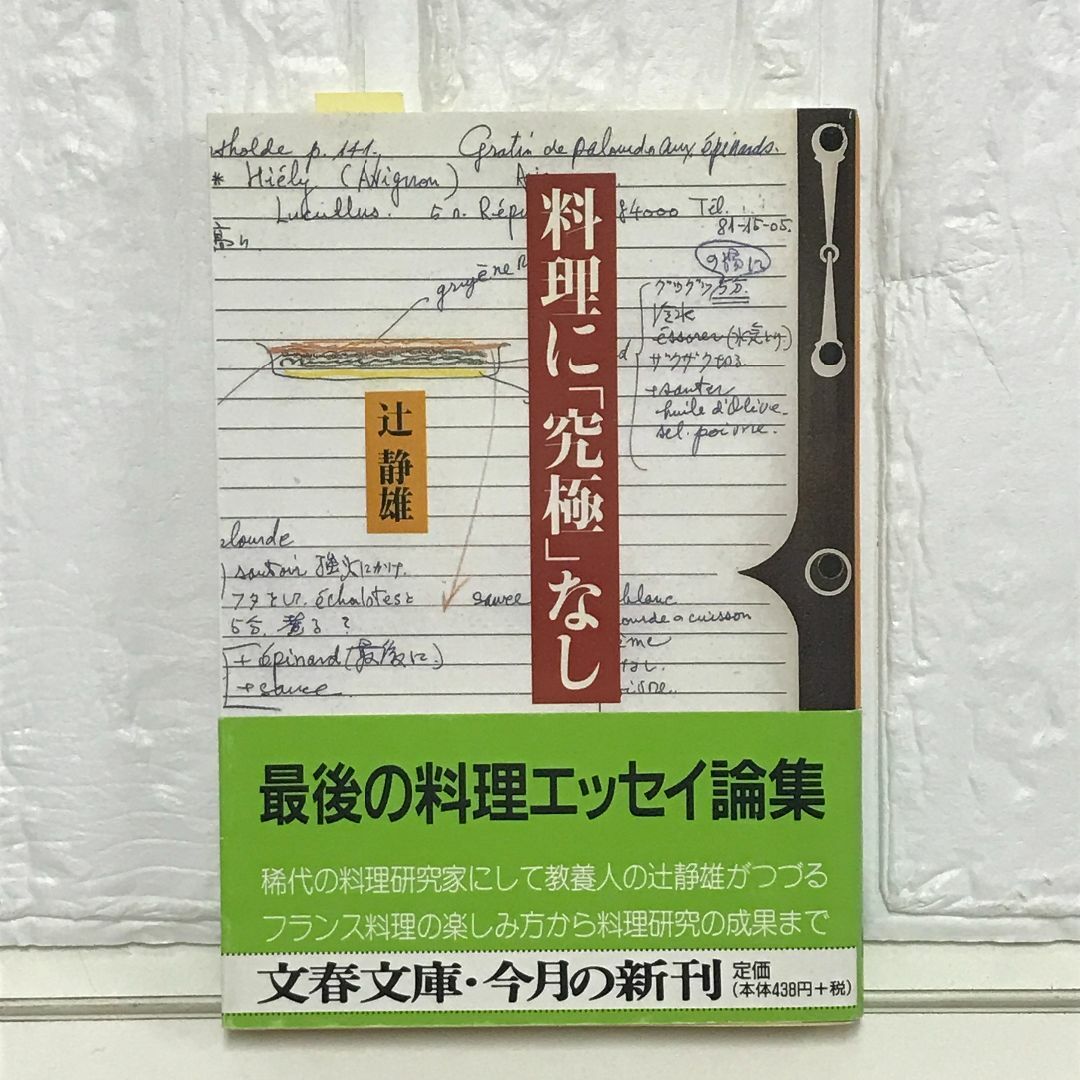 sholde p. 141. Gratin de palourdes aux épinards.
* Hiély (Avignon)
Lucullus. 5 r. Répu 84000 Tél.
81-15-05.
高い
の場に
gruyère R
グツグツ 5分.
冷水
essorer (水気とり)
ザクザク切る
+ sauter
huile d'Olive.
sel. poivre.
料理に「究極」なし
辻 静雄
lourde
sautoir 強火にかけ.
フタをして. échalotes と
5分. 煮る?
+ épinard (最後に.)
+ sauce
sauce blanc
ourde a cuisson
ème
なし.
ivre.
最後の料理エッセイ論集
稀代の料理研究家にして教養人の辻静雄がつづる
フランス料理の楽しみ方から料理研究の成果まで
文春文庫・今月の新刊
定価
(本体438円+税)